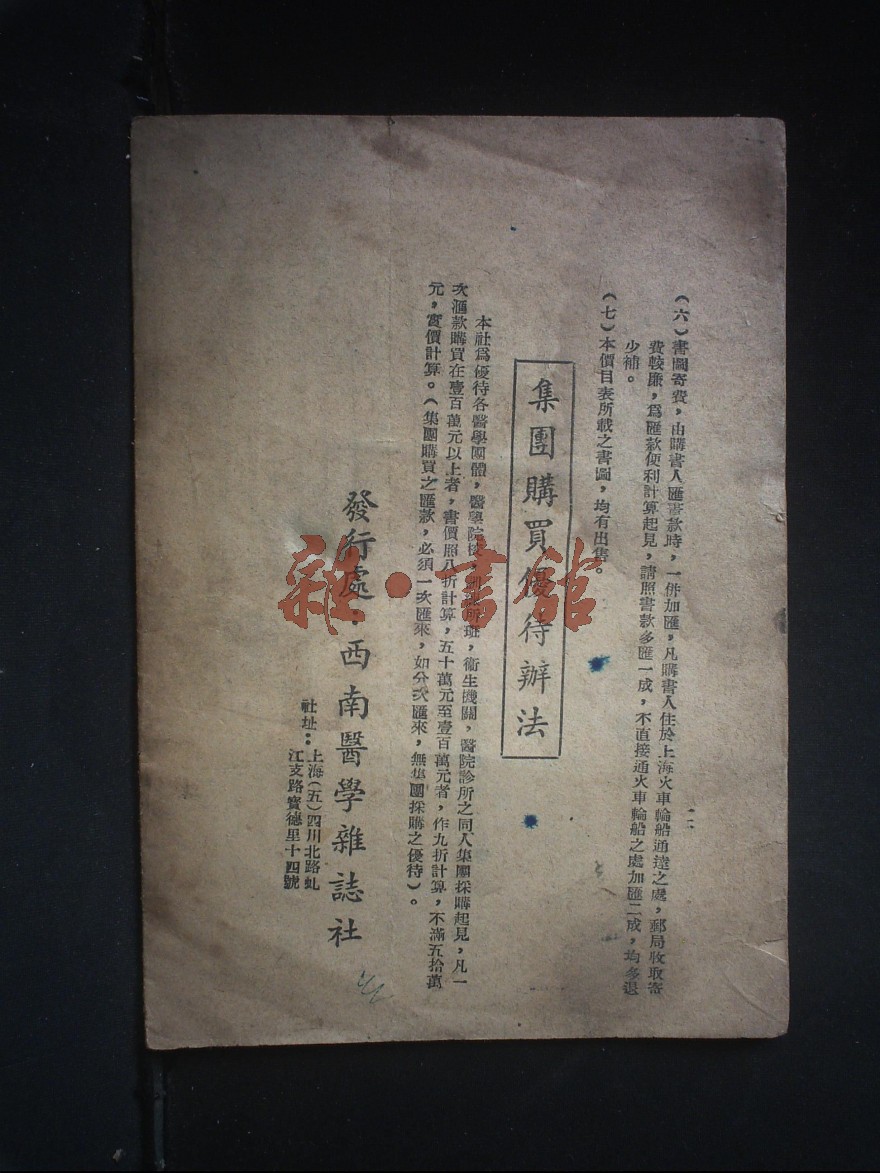 二
(六)書圖寄費,由購書人匯書款時,一併加匯,凡購書人住於上海火車輪船通達之處,郵局收取寄
費較廉,爲匯款便利計算起見,請照書款多匯一成,不直接通火車輪船之處加匯二成,均多退
少補。
(七)本價目表所載之書圖,均有出售。
集團購買優待辦法
本社爲優待各醫學團體,醫學院校,訓練所班,衞生機關,醫院診所之同人集團採購起見,凡一
次滙款購買在壹百萬元以上者,書價照八折計算,五十萬元至壹百萬元者,作九折計算,不滿五拾萬
元,實價計算。(集團購買之匯款,必須一次匯來,如分次匯來,無集團採購之優待)。
發行處:西南醫學雜誌社
社址:上海(五)四川北路虬
江支路寶德里十四號
雜·書館